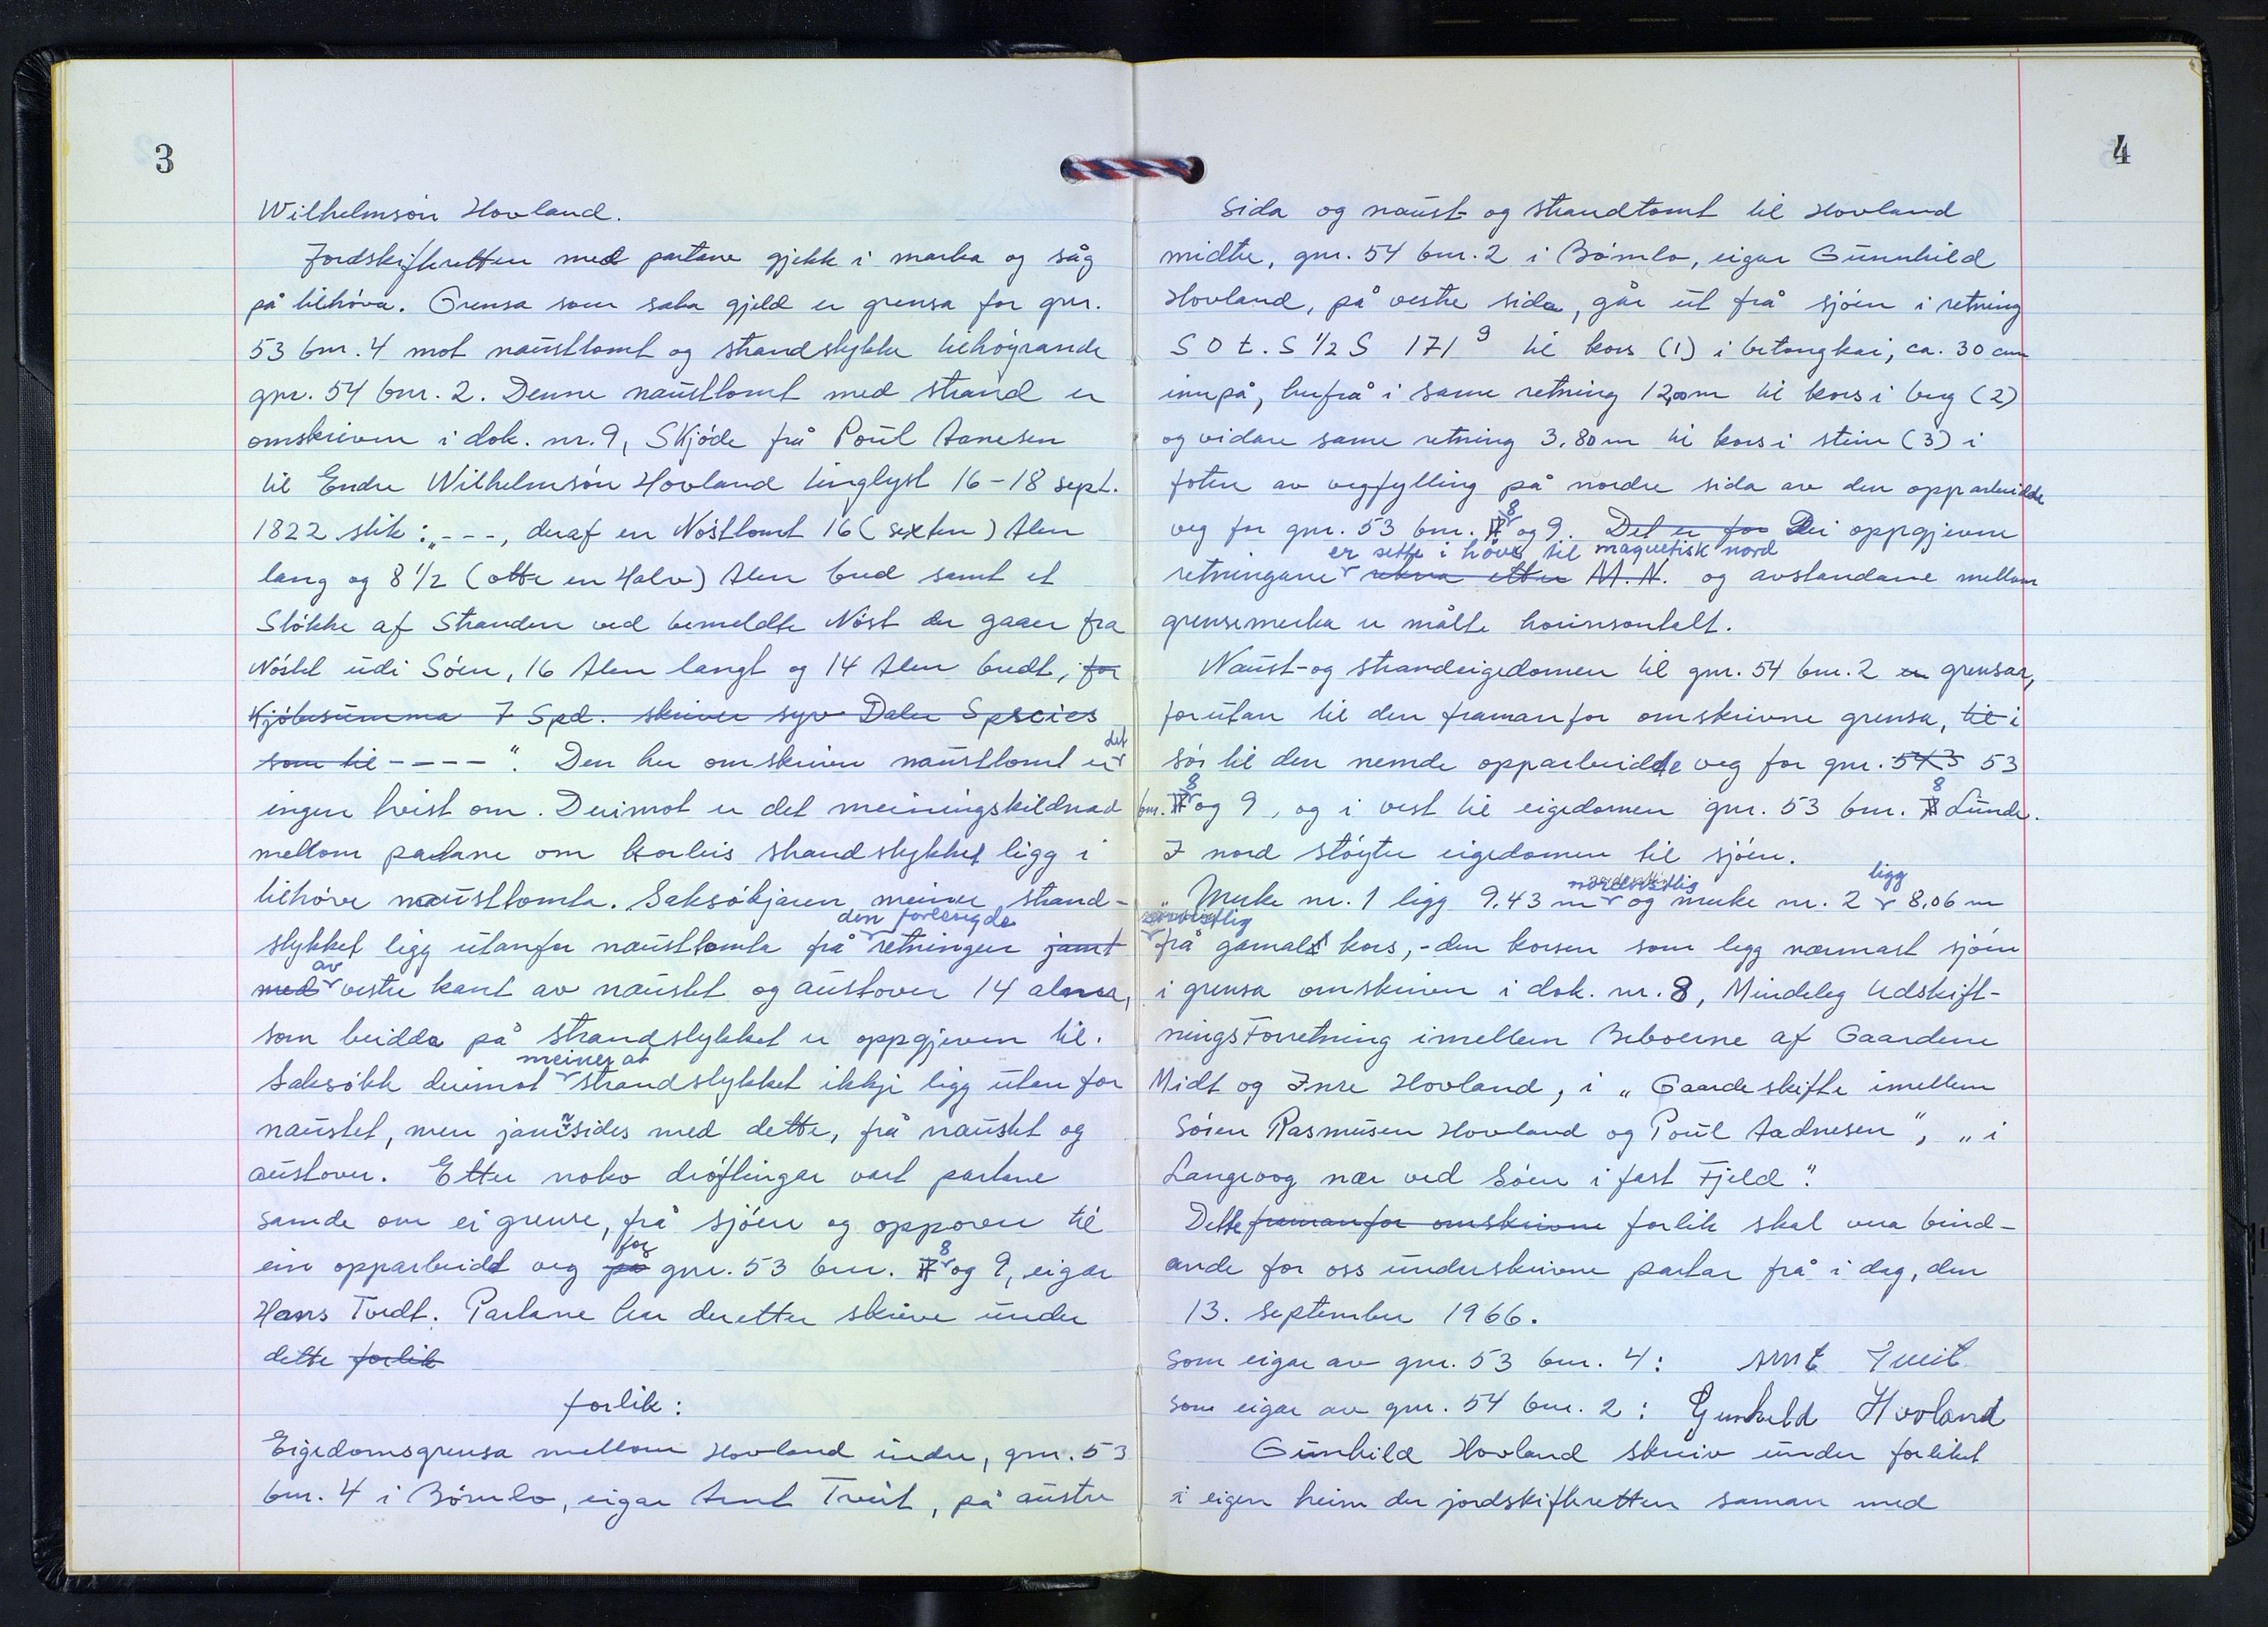 3
Wilhelmsön Hovland.
Jordskifteretten med partane gjekk i marka og såg
på tilhöva. Grensa som saka gjeld er grensa for gnr.
53 bnr. 4 mot nausttomt og strandstykke tilhöyrande
gnr. 54 bnr. 2. Denne nausttomt med strand er
omskriven i dok. nr. 9, Skjöde frå Poul Aanesen
til Endre Wilhelmsön Hovland tinglyst 16-18 sept.
1822 slik: „---, deraf en Nösttomt 16 (sexten) Alen
lang og 8 1/2 (otte en Halv) Alen bred samt et
Stökke af Stranden ved bemeldte Nöst der gaaer fra
Nöstet udi Söen, 16 Alen langt og 14 Alen bredt, for
Kjöbesumma 7 Spd. skriver syv Daler Species
som til ----". Den her omskrivne nausttomt er det
ingen tvist om. Derimot er det meiningskildnad
mellom partane om korleis strandstykket ligg i
tilhöve nausttomta. Saksökjaren meiner strand-
stykket ligg utanfor nausttomta frå den forlengde retningen jamt
med av vestre kant av naustet og austover 14 alner,
som breidda på strandstykket er oppgjeven til.
Saksökk derimot meiner at strandstykket ikkje ligg utanfor
naustet, men jamnsides med dette, frå naustet og
austover. Etter noko dröftingar vart partane
samde om ei grense, frå sjöen og oppover til
ein opparbeidd veg på for gnr. 53 bnr. 7 8 og 9, eigar
Hans Tvedt. Partane har deretter skrive under
dette forlik
forlik:
Eigedomsgrensa mellom Hovland indre, gnr. 53
bnr. 4 i Bömlo, eigar Arnt Tveit, på austre
4
sida og naust- og strandtomt til Hovland
midtre, gnr. 54 bnr. 2 i Bömlo, eigar Gunnhild
Hovland, på vestre sida, går ut frå sjöen i retning
S O t. S 1/2 S 171 g til kors (1) i betongkai, ca. 30 cm
innpå, herfrå i same retning 12,00 m til kors i berg (2)
og vidare same retning 3.80 m til kors i stein (3) i
foten av vegfylling på nordre sida av den opparbeidde
veg for gnr. 53 bnr. 7 8 og 9. Det er for Dei oppgjevne
retningane er sette i höve til magnetisk nord rekna etter M.N. og avstandane mellom
grensemerka er målte horinsontalt.
Naust- og strandeigedomen til gnr. 54 bnr. 2 er grensar,
forutan til den framanfor omskrivne grensa, til i
sör til den nemde opparbeidde veg for gnr. 54 3 53
bnr. 7 8 og 9, og i vest til eigedomen gnr. 53 bnr. 7 8 Lunde.
I nord stöyter eigedomen til sjöen.
„Merke nr. 1 ligg 9.43 m nordaustlig og merke nr. 2 ligg 8.06 m
frå gamalt kors, - den korsen som legg nærmast sjöen
i grensa omskriven i dok. nr. 8, Mindelig Udskift-
ningsForretning imellem Beboerne af Gaardene
Midt og Inre Hovland, i „Gaardeskifte imellem
Sören Rasmusen Hovland og Poul Aadnesen", „i
Langevog nær ved Söen i fast Fjeld".
Dette framanfor omskrivne forlik skal vera bind-
ande for oss underskrivne partar frå i dag, den
13. september 1966.
Som eigar av gnr. 53 bnr. 4: Arnt Tveit
Som eigar av gnr. 54 bnr. 2: Gunhild Hovland
Gunhild Hovland skreiv under forliket
i eigen heim der jordskifteretten saman med